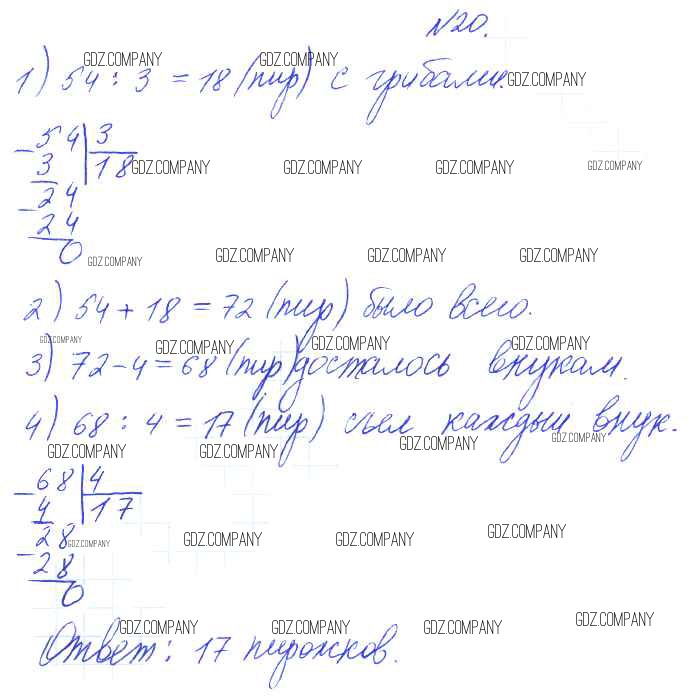 N20.
GDZ.COMPANY GDZ.COMPANY
1) 54 : 3 = 18 (пир) с грибами.
GDZ.COMPANY
- 54 | 3
3 | 18
GDZ.COMPANY GDZ.COMPANY GDZ.COMPANY GDZ.COMPANY
- 24
24
0
GDZ.COMPANY GDZ.COMPANY GDZ.COMPANY GDZ.COMPANY
2) 54 + 18 = 72 (пир) было всего.
GDZ.COMPANY GDZ.COMPANY GDZ.COMPANY GDZ.COMPANY
3) 72 - 4 = 68 (пир) досталось внукам.
4) 68 : 4 = 17 (пир) съел каждый внук.
GDZ.COMPANY GDZ.COMPANY GDZ.COMPANY GDZ.COMPANY
- 68 | 4
4 | 17
- 28
28
0
GDZ.COMPANY GDZ.COMPANY GDZ.COMPANY GDZ.COMPANY
GDZ.COMPANY GDZ.COMPANY GDZ.COMPANY GDZ.COMPANY
Ответ: 17 пирожков.